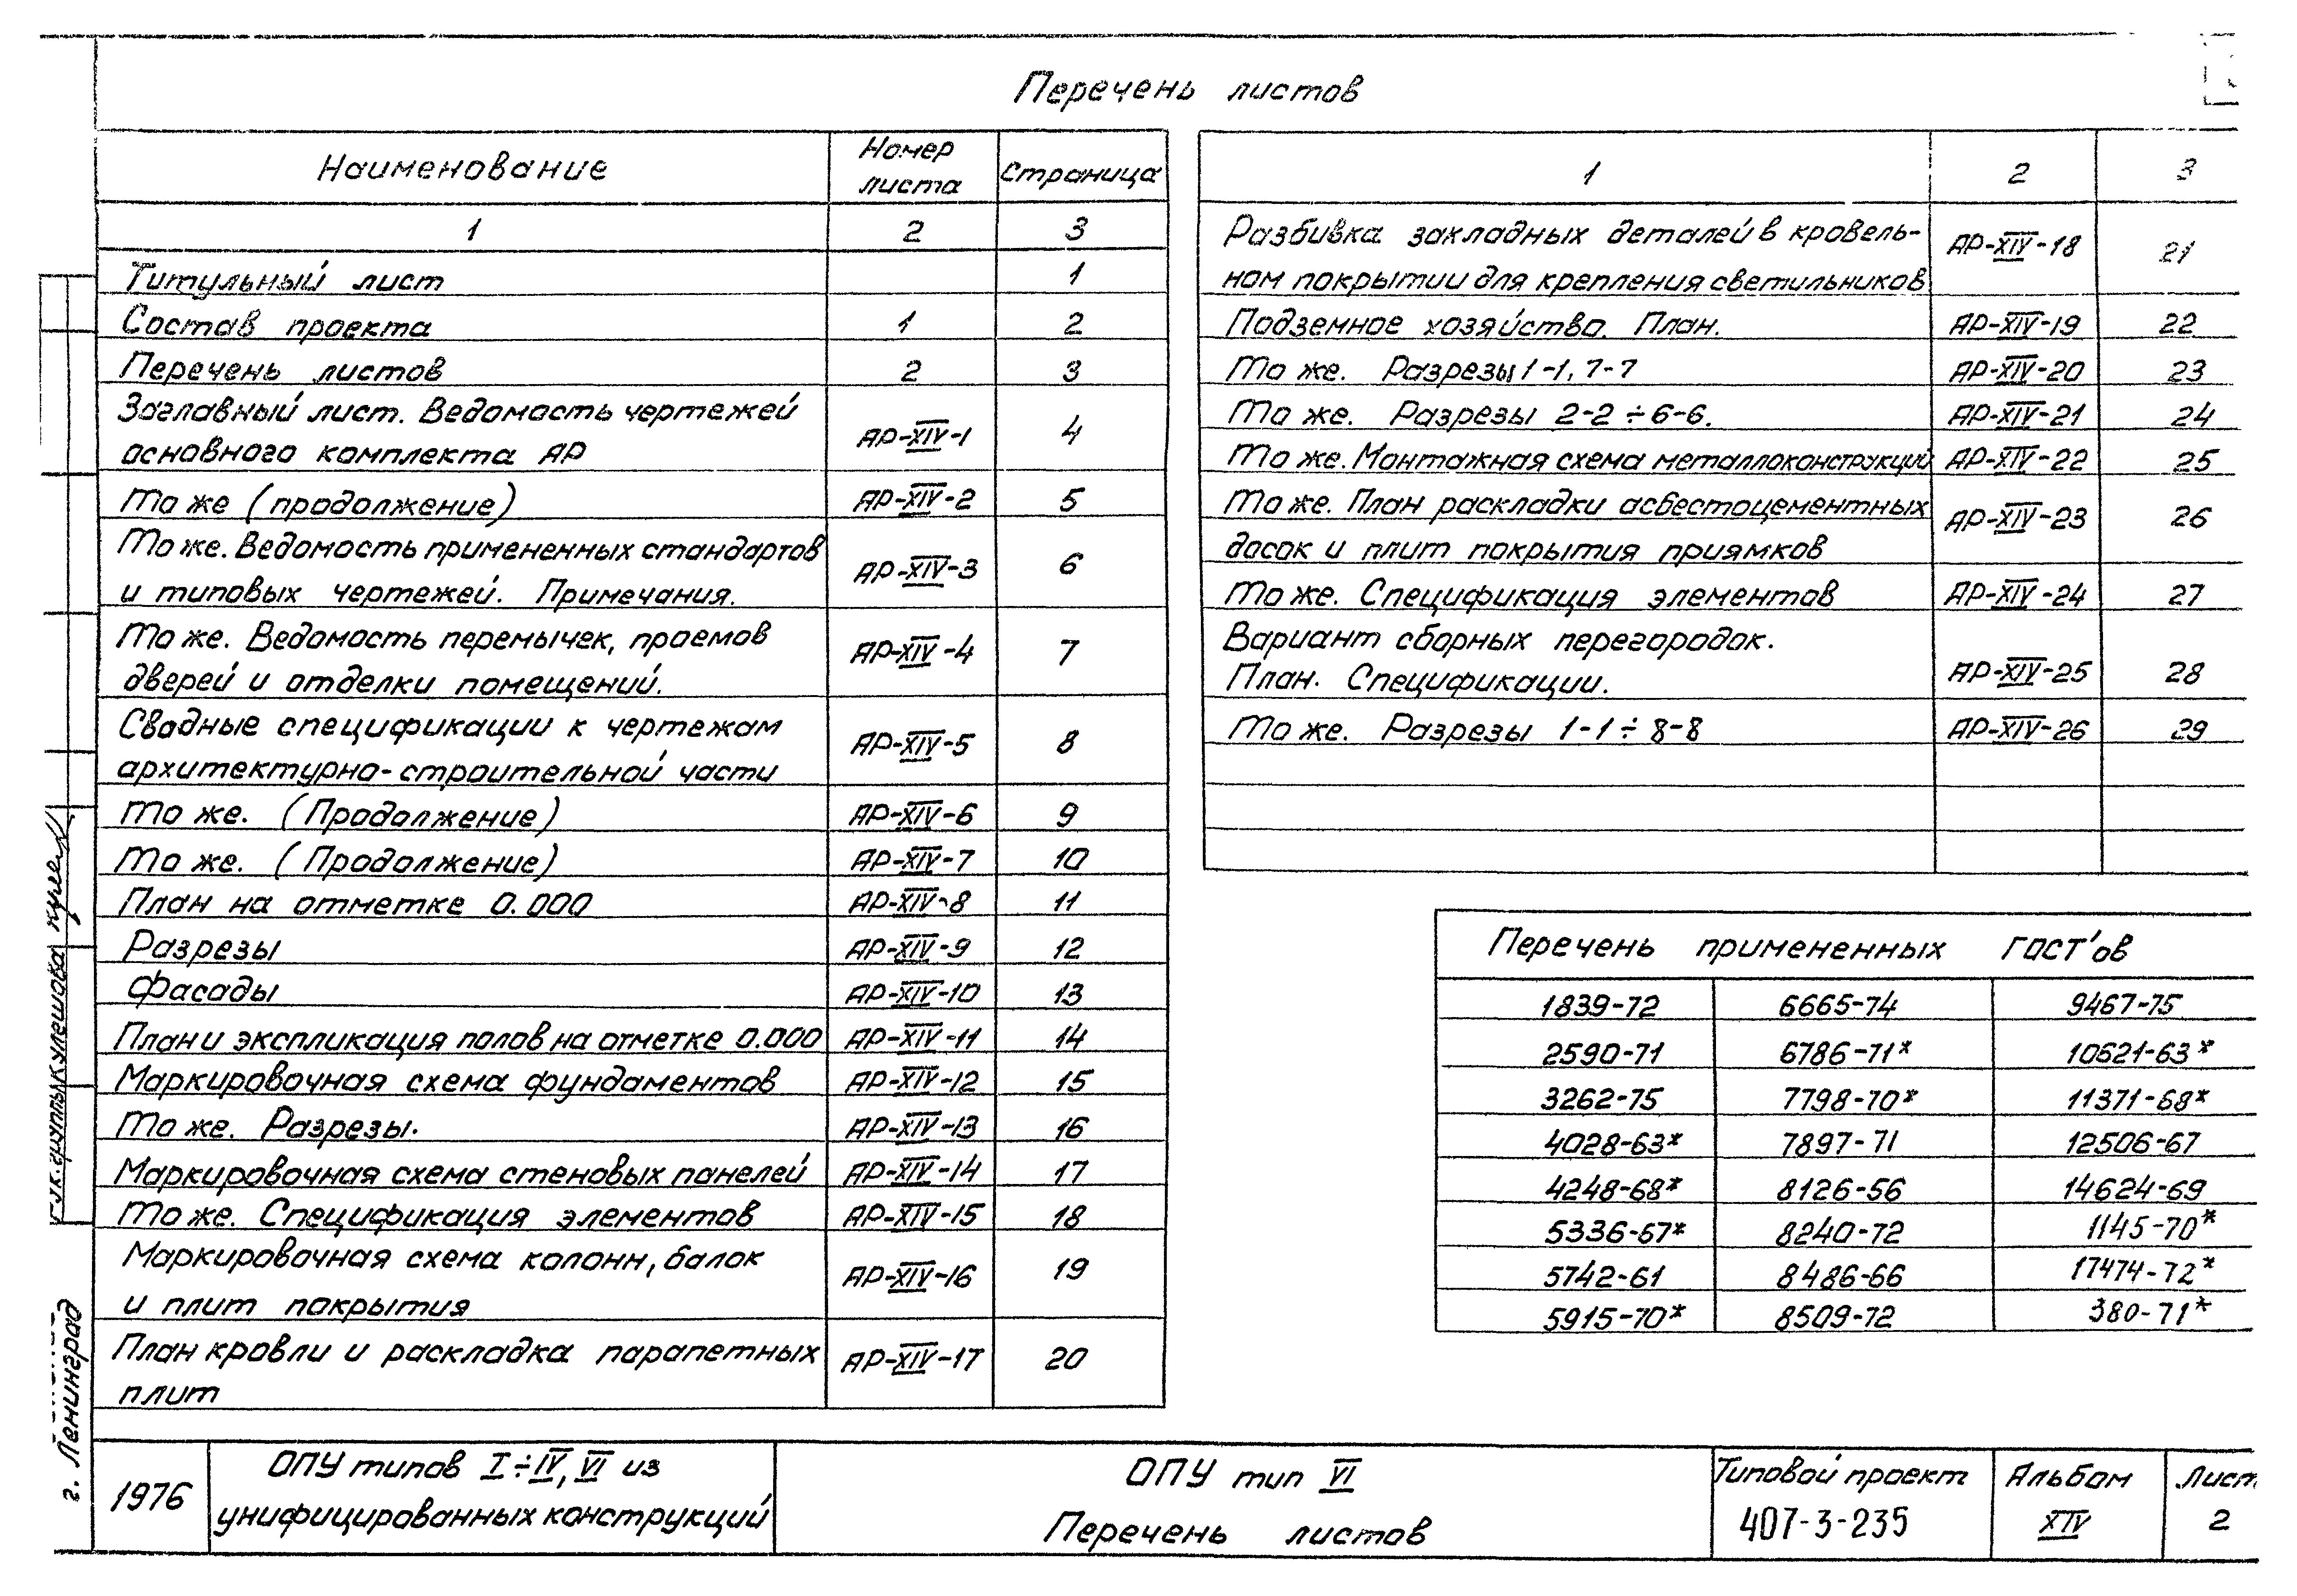 Перечень листов
Наименование
Номер
листа
Страница
1 2 3
Титульный лист 1
Состав проекта 1 2
Перечень листов 2 3
Заглавный лист. Ведомость чертежей
основного комплекта АР АР-XIV-1 4
То же (продолжение) АР-XIV-2 5
То же. Ведомость примененных стандартов
и типовых чертежей. Примечания. АР-XIV-3 6
То же. Ведомость перемычек, проемов
дверей и отделки помещений. АР-XIV-4 7
Сводные спецификации к чертежам
архитектурно-строительной части АР-XIV-5 8
То же. (Продолжение) АР-XIV-6 9
То же. (Продолжение) АР-XIV-7 10
План на отметке 0.000 АР-XIV-8 11
Разрезы АР-XIV-9 12
Фасады АР-XIV-10 13
План и экспликация полов на отметке 0.000 АР-XIV-11 14
Маркировочная схема фундаментов АР-XIV-12 15
То же. Разрезы. АР-XIV-13 16
Маркировочная схема стеновых панелей АР-XIV-14 17
То же. Спецификация элементов АР-XIV-15 18
Маркировочная схема колонн, балок
и плит покрытия АР-XIV-16 19
План кровли и раскладка парапетных
плит АР-XIV-17 20
1 2 3
Разбивка закладных деталей в кровель-
ном покрытии для крепления светильников АР-XIV-18 21
Подземное хозяйство. План. АР-XIV-19 22
То же. Разрезы 1-1, 7-7 АР-XIV-20 23
То же. Разрезы 2-2 ÷ 6-6. АР-XIV-21 24
То же. Монтажная схема металлоконструкций АР-XIV-22 25
То же. План раскладки асбестоцементных
досок и плит покрытия приямков АР-XIV-23 26
То же. Спецификация элементов АР-XIV-24 27
Вариант сборных перегородок.
План. Спецификации. АР-XIV-25 28
То же. Разрезы 1-1 ÷ 8-8 АР-XIV-26 29
Перечень примененных ГОСТ'ов
1839-72 6665-74 9467-75
2590-71 6786-71* 10621-63*
3262-75 7798-70* 11371-68*
4028-63* 7897-71 12506-67
4248-68* 8126-56 14624-69
5336-67* 8240-72 1145-70*
5742-61 8486-66 17474-72*
5915-70* 8509-72 380-71*
г. Ленинград
Кулешова
1976
ОПУ типов I÷IV, VI из
унифицированных конструкций
ОПУ тип VI
Перечень листов
Типовой проект
407-3-235
Альбом
XIV
Лист
2